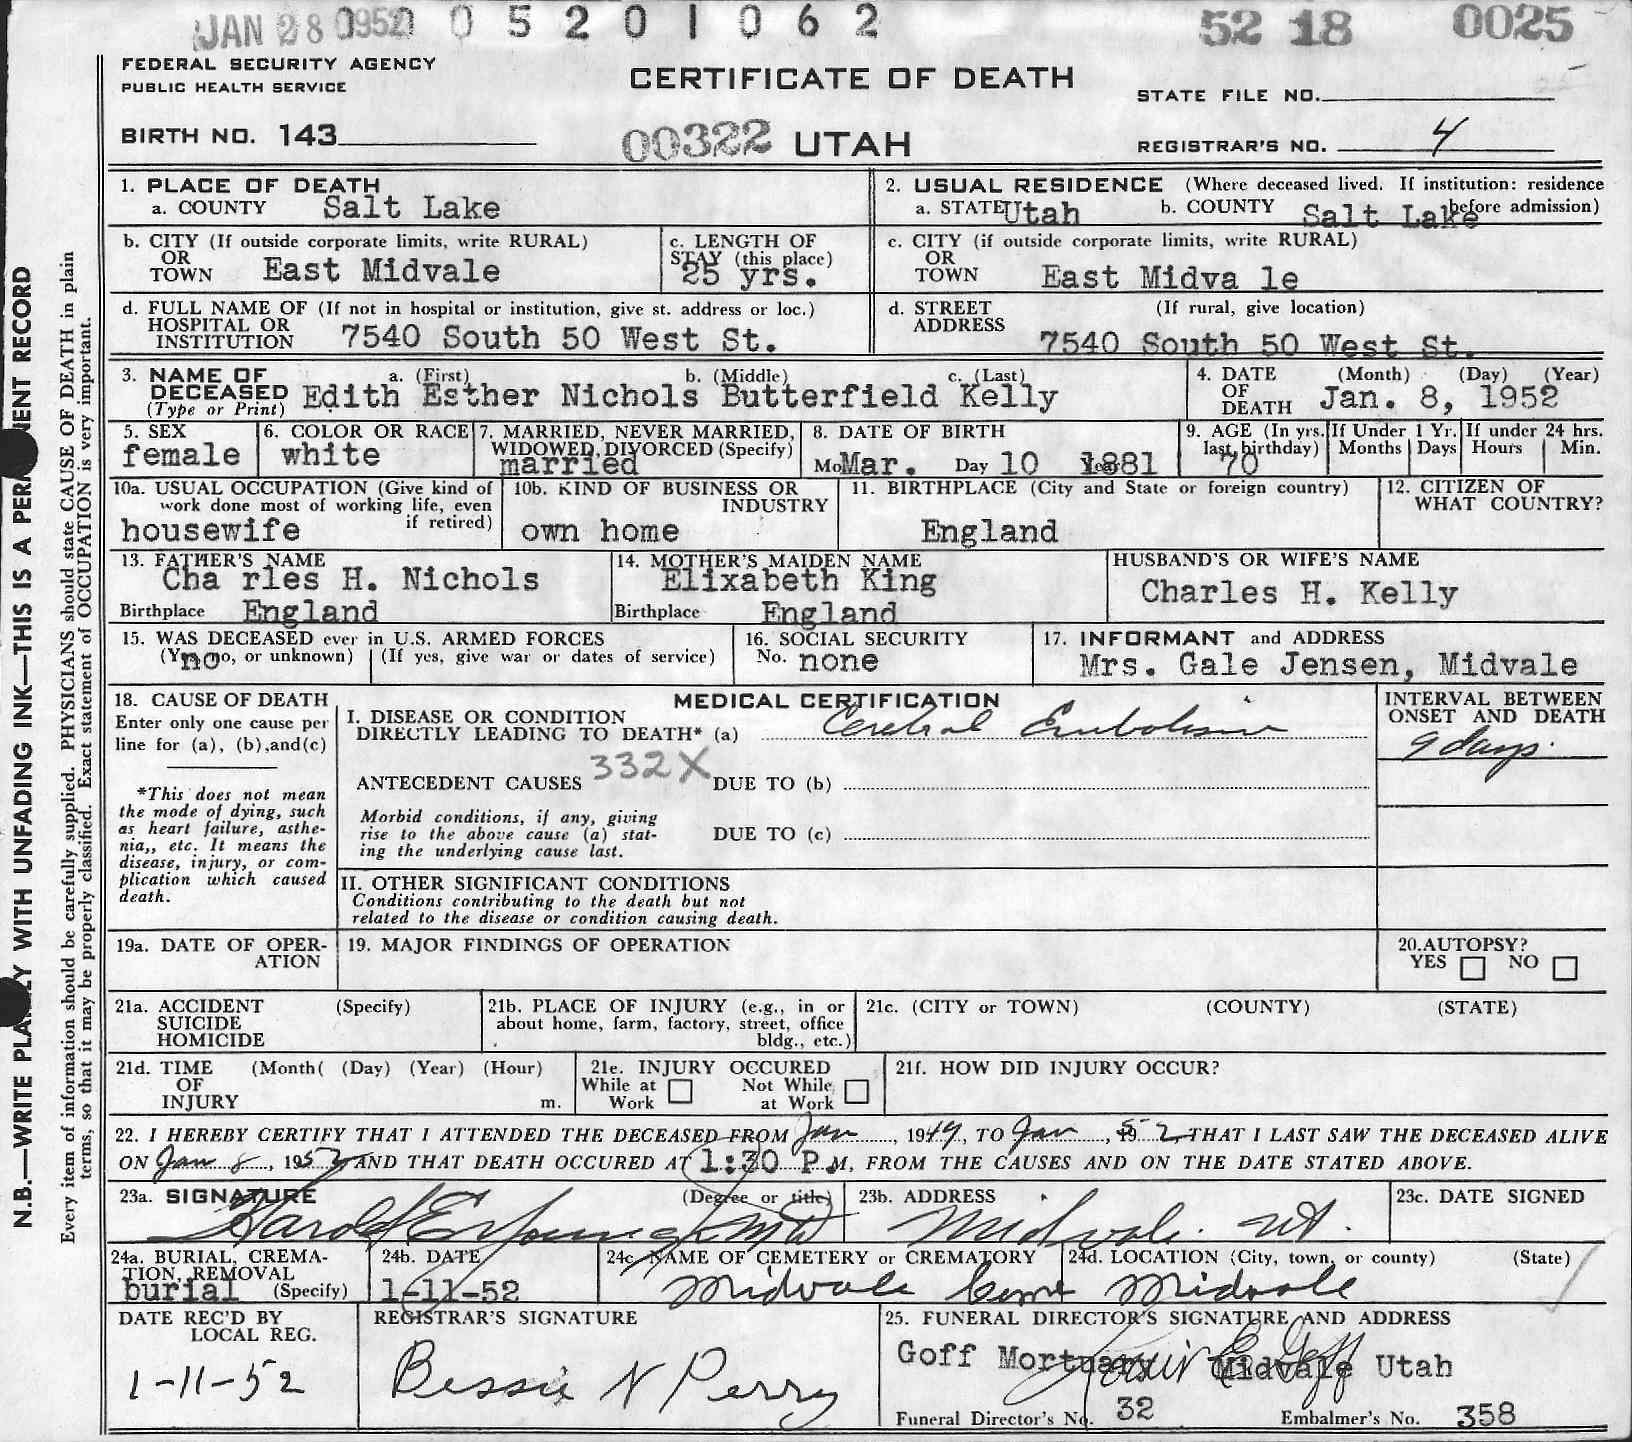 JAN 28 1952 0 0 5 2 0 1 0 6 2 52 18 0025
FEDERAL SECURITY AGENCY
PUBLIC HEALTH SERVICE
CERTIFICATE OF DEATH
STATE FILE NO.
BIRTH NO. 143
00322 UTAH
REGISTRAR'S NO. 4
1. PLACE OF DEATH
a. COUNTY Salt Lake
2. USUAL RESIDENCE (Where deceased lived. If institution: residence
before admission)
a. STATE Utah b. COUNTY Salt Lake
b. CITY (If outside corporate limits, write RURAL)
OR
TOWN East Midvale
c. LENGTH OF
STAY (this place)
25 yrs.
c. CITY (if outside corporate limits, write RURAL)
OR
TOWN East Midva le
d. FULL NAME OF (If not in hospital or institution, give st. address or loc.)
HOSPITAL OR
INSTITUTION 7540 South 50 West St.
d. STREET (If rural, give location)
ADDRESS 7540 South 50 West St.
3. NAME OF a. (First) b. (Middle) c. (Last)
DECEASED Edith Esther Nichols Butterfield Kelly
(Type or Print)
4. DATE (Month) (Day) (Year)
OF
DEATH Jan. 8, 1952
5. SEX
female
6. COLOR OR RACE
white
7. MARRIED, NEVER MARRIED,
WIDOWED, DIVORCED (Specify)
married
8. DATE OF BIRTH
Mo Mar. Day 10 Year 1881
9. AGE (In yrs.
last birthday)
70
If Under 1 Yr.
Months Days
If under 24 hrs.
Hours Min.
10a. USUAL OCCUPATION (Give kind of
work done most of working life, even
if retired)
housewife
10b. KIND OF BUSINESS OR
INDUSTRY
own home
11. BIRTHPLACE (City and State or foreign country)
England
12. CITIZEN OF
WHAT COUNTRY?
13. FATHER'S NAME
Cha rles H. Nichols
Birthplace England
14. MOTHER'S MAIDEN NAME
Elixabeth King
Birthplace England
HUSBAND'S OR WIFE'S NAME
Charles H. Kelly
15. WAS DECEASED ever in U.S. ARMED FORCES
(Y no o, or unknown) (If yes, give war or dates of service)
16. SOCIAL SECURITY
No. none
17. INFORMANT and ADDRESS
Mrs. Gale Jensen, Midvale
18. CAUSE OF DEATH
Enter only one cause per
line for (a), (b),and(c)
*This does not mean
the mode of dying, such
as heart failure, asthe-
nia,, etc. It means the
disease, injury, or com-
plication which caused
death.
MEDICAL CERTIFICATION
I. DISEASE OR CONDITION
DIRECTLY LEADING TO DEATH* (a) Cerebral Embolism
ANTECEDENT CAUSES 332X DUE TO (b)
Morbid conditions, if any, giving
rise to the above cause (a) stat-
ing the underlying cause last.
DUE TO (c)
II. OTHER SIGNIFICANT CONDITIONS
Conditions contributing to the death but not
related to the disease or condition causing death.
INTERVAL BETWEEN
ONSET AND DEATH
9 days.
19a. DATE OF OPER-
ATION
19. MAJOR FINDINGS OF OPERATION
20.AUTOPSY?
YES NO
21a. ACCIDENT (Specify)
SUICIDE
HOMICIDE
21b. PLACE OF INJURY (e.g., in or
about home, farm, factory, street, office
bldg., etc.)
21c. (CITY or TOWN) (COUNTY) (STATE)
21d. TIME (Month( (Day) (Year) (Hour)
OF
INJURY m.
21e. INJURY OCCURED
While at Work Not While at Work
21f. HOW DID INJURY OCCUR?
22. I HEREBY CERTIFY THAT I ATTENDED THE DECEASED FROM Jan, 1949, TO Jan, 1952 THAT I LAST SAW THE DECEASED ALIVE
ON Jan 8, 1952 AND THAT DEATH OCCURED AT 1:30 P.M, FROM THE CAUSES AND ON THE DATE STATED ABOVE.
23a. SIGNATURE (Degree or title)
Harold E Young MD
23b. ADDRESS
Midvale. Ut.
23c. DATE SIGNED
24a. BURIAL, CREMA-
TION, REMOVAL
burial (Specify)
24b. DATE
1-11-52
24c. NAME OF CEMETERY or CREMATORY
Midvale Cem
24d. LOCATION (City, town, or county) (State)
Midvale
DATE REC'D BY
LOCAL REG.
1-11-52
REGISTRAR'S SIGNATURE
Bessie N Perry
25. FUNERAL DIRECTOR'S SIGNATURE AND ADDRESS
Goff Mortuary Midvale Utah
Funeral Director's No. 32 Embalmer's No. 358
N.B.—WRITE PLAINLY WITH UNFADING INK—THIS IS A PERMANENT RECORD
Every item of information should be carefully supplied. PHYSICIANS should state CAUSE OF DEATH in plain
terms, so that it may be properly classified. Exact statement of OCCUPATION is very important.